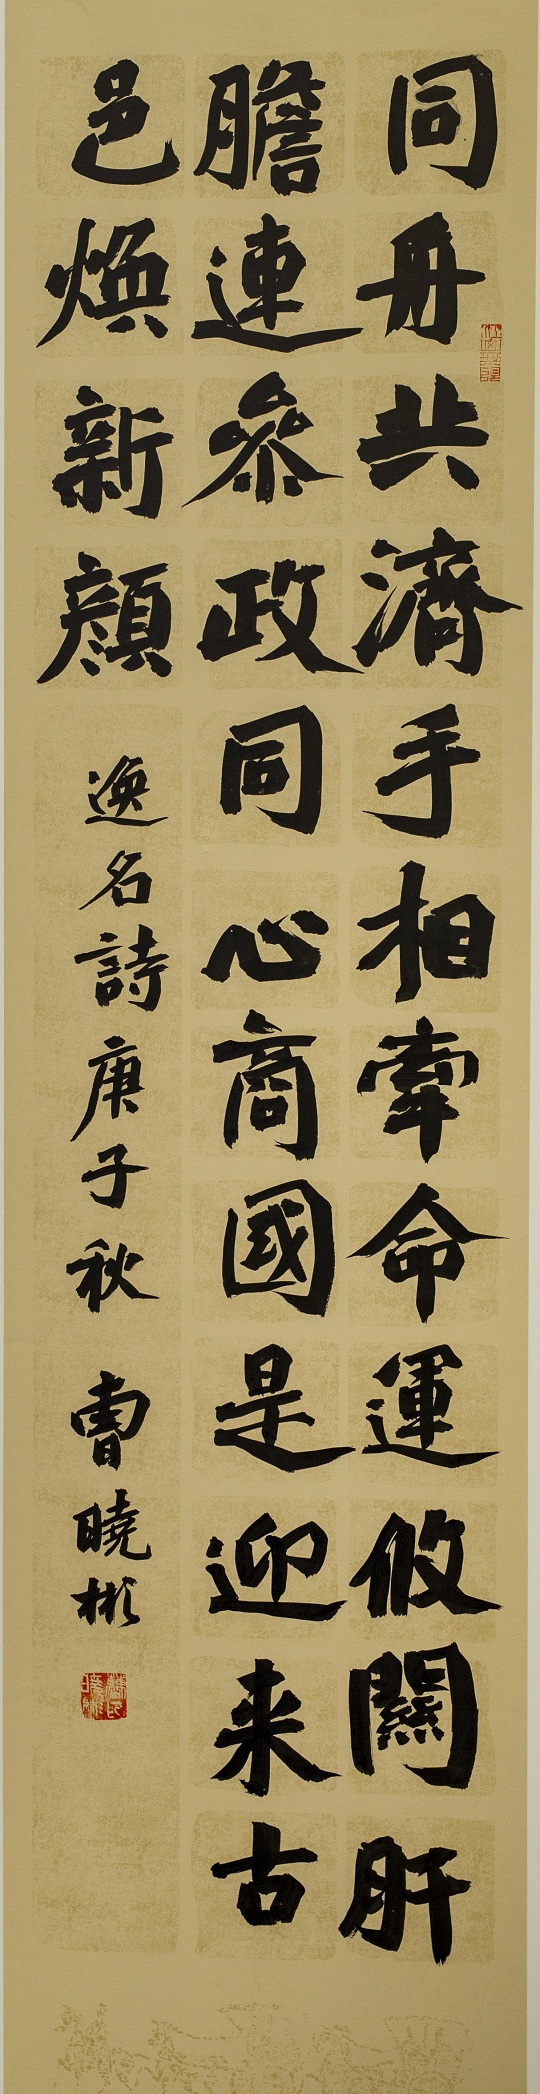 同舟共濟手相牽命運攸關肝
膽連參政同心商國是迎来古
邑煥新顏逸名詩庚子秋曹曉彬